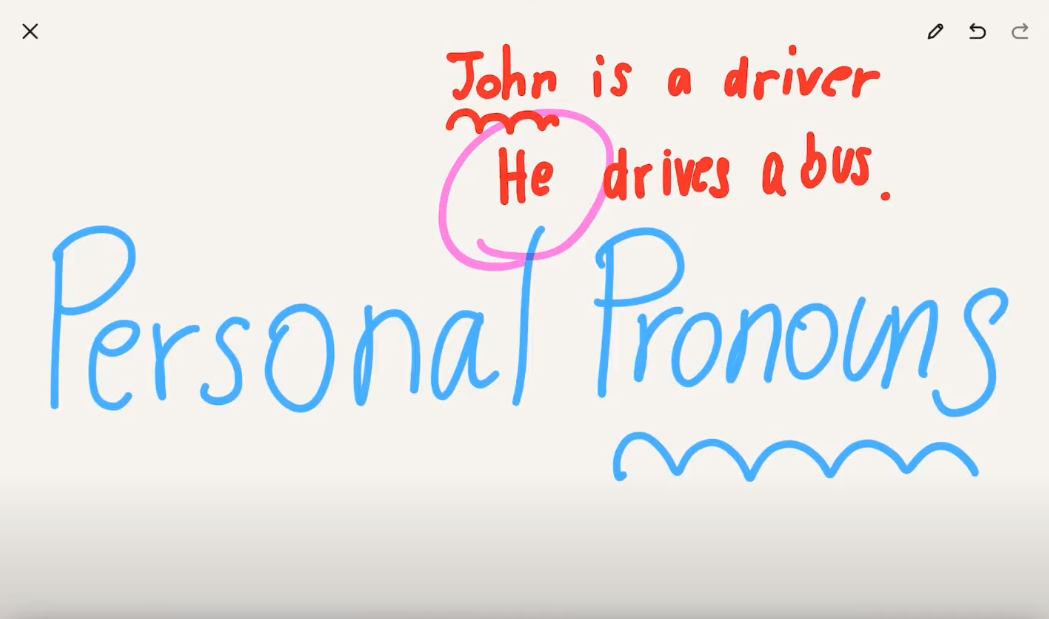 John is a driver
He drives a bus.
Personal Pronouns